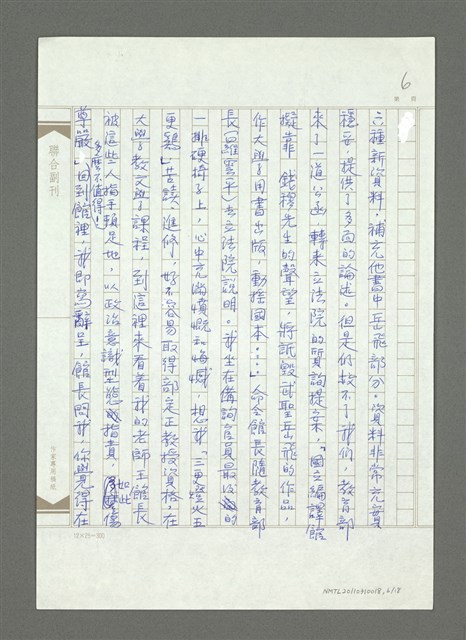 6
第 頁
六種新資料，補充他書中岳飛部分。資料非常充實
穩妥，提供了多面的論述。但是仍救不了我們，教育部
來了一道公函，轉來立法院的質詢提案，「國立編譯館
擬靠錢穆先生的聲望，將詆毀武聖岳飛的作品，
作大學用書出版，動搖國本……」命令館長隨教育部
長(羅雲平)去立法院說明。我坐在備詢官員最後的
一排硬椅子上，心中充滿憤慨和悔憾，想我「三更燈火五
更鷄」苦讀，進修，好不容易取得部定正教授資格，在
大學教文學課程，到這裡來看着我的老師王館長
被這些人指手頓足地，以政治意識型態指責，如此傷
尊嚴，多麼不值得！」回到館裡，我即寫辭呈，館長問我，「你覺得在
聯合副刊
作家專用稿紙
12×25=300
NMTL20110310018,6/18